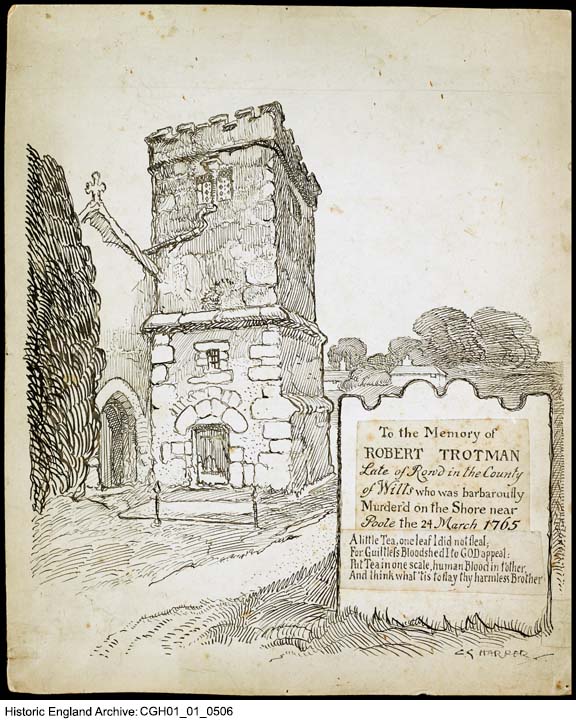 To the Memory of
ROBERT TROTMAN
Late of Rowd in the County
of Wilts who was barbarouſly
Murder'd on the Shore near
Poole the 24 March 1765
A little Tea, one leaf I did not ſteal;
For Guiltleſs Bloodshed I to GOD appeal:
Put Tea in one scale, human Blood in t'other,
And think what 'tis to ſlay thy harmleſs Brother
C G HARPER
Historic England Archive: CGH01_01_0506